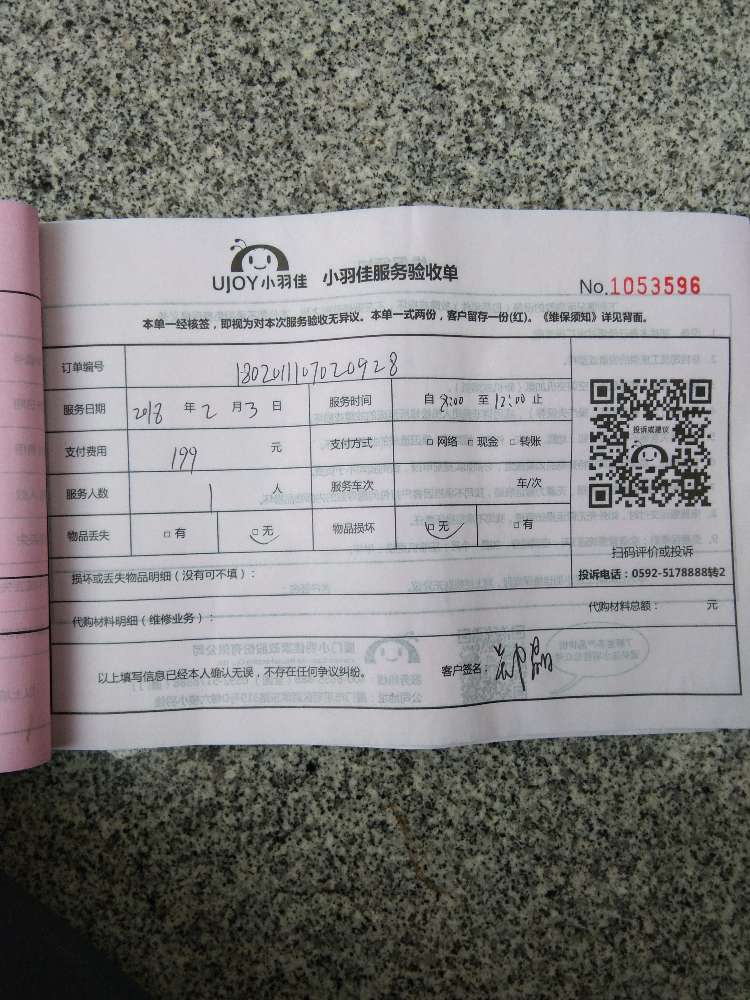 UJOY小羽佳 小羽佳服务验收单
No.1053596
本单一经核签，即视为对本次服务验收无异议。本单一式两份，客户留存一份(红)。《维保须知》详见背面。
订单编号 180201107020928
服务日期 2018 年 2 月 3 日 服务时间 自 8:00 至 12:00 止
支付费用 199 元 支付方式 □ 网络 □ 现金 □ 转账
服务人数 1 人 服务车次 车/次
物品丢失 □ 有 □ 无 物品损坏 □ 无 □ 有
投诉或建议
扫码评价或投诉
投诉电话：0592-5178888转2
损坏或丢失物品明细（没有可不填）：
代购材料明细（维修业务）： 代购材料总额： 元
以上填写信息已经本人确认无误，不存在任何争议纠纷。 客户签名：